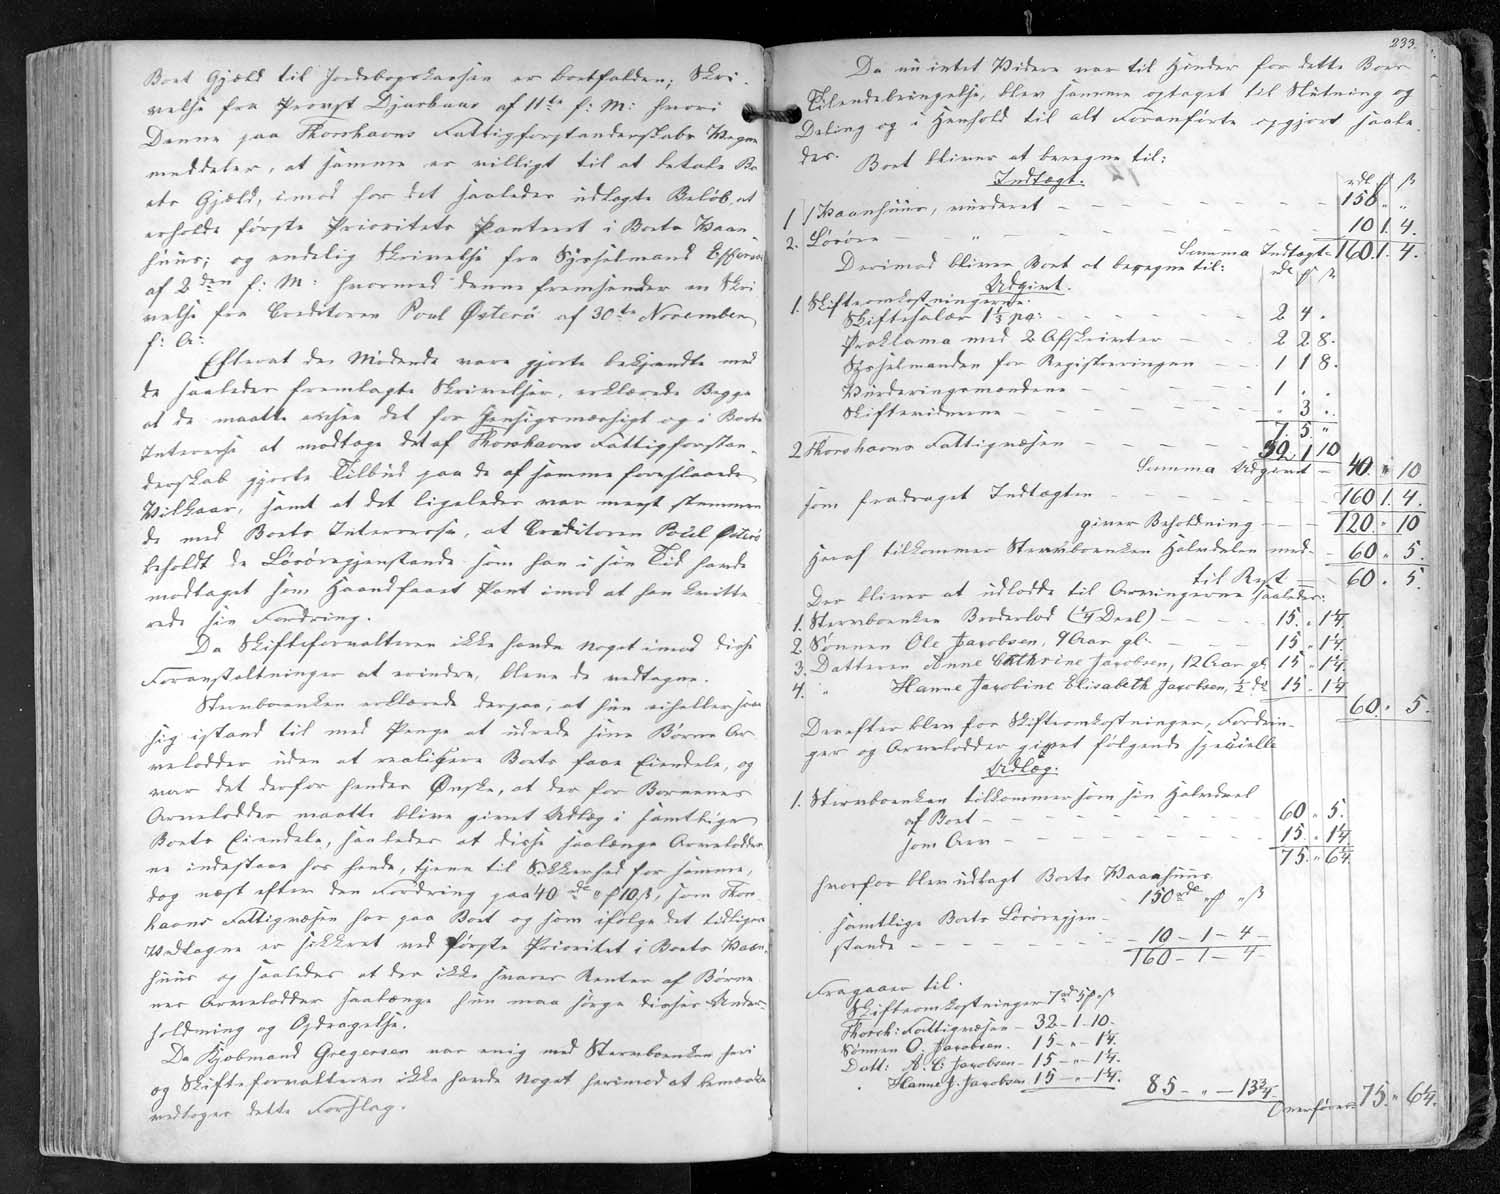 Boet Gjæld til Jordebogskassen er bortfalden; Skri-
velse fra Provst Djurhuus af 11te f: M: hvori
Denne paa Thorshavns Fattigforstanderskabs Vegne
meddeler, at samme er villigt til at betale Bo-
ets Gjæld, imod for det saaledes udlagte Beløb, at
erholde første Prioritets Panteret i Boets Vaan-
huus; og endelig Skrivelse fra Sysselmand Effersøe
af 2den f: M: hvormed denne fremsender en Skri-
velse fra Creditoren Poul Østerø af 30te November
f: A:
Efterat de Mødende vare gjorte bekjendte med
de saaledes fremlagte Skrivelser, erklærede Begge
at de maatte ansee det for hensigtsmæssigt og i Boets
Interesse at modtage det af Thorshavns Fattigforstan-
derskab gjorte Tilbud paa de af samme foreslaaede
Vilkaar, samt at det ligeledes var meest stemmen-
de med Boets Interesse, at Creditoren Poul Østerø
beholdt de Løsøregjenstande som han i sin Tid havde
modtaget som Haandfaaet Pant imod at han kvitte-
rede sin Fordring.
Da Skifteforvalteren ikke havde Noget imod disse
Foranstaltninger at erindre, bleve de vedtagne.
Stervboenken erklærede derpaa, at hun ei heller saae
sig istand til med Penge at udrede sine Børns Ar-
velodder uden at realisere Boets faae Eiendele, og
var det derfor hendes Ønske, at der for Børnenes
Arvelodder maatte blive givet Udlæg i samtlige
Boets Eiendele, saaledes at disse saalænge Arvelodder-
ne indestaae hos hende, tjene til Sikkerhed for samme,
dog næst efter den Fordring paa 40 rd " ₰ 10 ß, som Thors-
havns Fattigvæsen har paa Boet og som ifølge det tidligere
Vedtagne er sikkret ved første Prioritet i Boets Vaan-
huus og saaledes at der ikke svares Renter af Børne-
nes Arvelodder saalænge hun maa sørge disses Under-
holdning og Opdragelse.
Da Kjøbmand Gregersen var enig med Stervboenken heri
og Skifteforvalteren ikke havde Noget herimod at bemærke
vedtoges dette Forslag.
233.
Da nu intet Videre var til Hinder for dette Boes
Tilendebringelse, blev samme optaget til Slutning og
Deling og i Henhold til alt Foranførte opgjort saale-
des. Boet bliver at beregne til:
Indtægt. rdl ₰ ß
1 1 Vaanhuus, vurderet — 150 " "
2. Løsøre — " — 10 1. 4.
Summa Indtægt 160. 1. 4.
Derimod bliver Boet at beregne til:
Udgivt. rdl ₰ ß
1. Skifteomkostningerne:
Skiftesalær 1⅓ pC: — 2 4 .
Proklama med 2 Afskrivter — 2 2 8.
Sysselmanden for Registreringen — 1 1 8.
Vurderingsmændene — 1 . .
Skiftevidnerne — " 3 ".
7. 5. "
2 Thorshavns Fattigvæsen — 32 1 10
Summa Udgivt — 40. " 10
som fradraget Indtægten — 160 1. 4.
giver Beholdning — 120 " 10
Heraf tilkommer Stervboenken Halvdelen med — 60 " 5.
til Rest — 60 . 5.
Der bliver at udlodde til Arvingerne saaledes:
1. Stervboenken Broderlod (¼ Deel) — 15. " 1¼.
2 Sønnen Ole Jacobsen, 9 Aar gl: — 15 " 1¼.
3. Datteren Anne Cathrine Jacobsen, 12 Aar gl. 15 " 1¼.
4. " Hanne Jacobine Elisabeth Jacobsen, ½ do 15 . 1¼
60. " 5.
Derefter blev for Skifteomkostninger, Fordrin-
ger og Arvelodder givet følgende specielle
Udlæg:
1. Stervboenken tilkommer som sin Halvdeel
af Boet — 60 " 5.
som Arv — 15. " 1¼.
75. " 6¼.
hvorfor blev udlagt Boets Vaanhuus
— 150 rdl " ₰ " ß
samtlige Boets Løsøregjen-
stande — 10 — 1 — 4 —
160 — 1 — 4 —
Fragaaer til.
Skifteomkostninger 7 rd 5 ₰ " ß
Thorsh: Fattigvæsen — 32 — 1 — 10.
Sønnen O. Jacobsen. 15 — " — 1¼.
Datt: A. C. Jacobsen — 15 — " — 1¼.
" Hanne J. Jacobsen 15 — " — 1¼. 85 — " — 13¾.
Overføres 75. " 6¼.